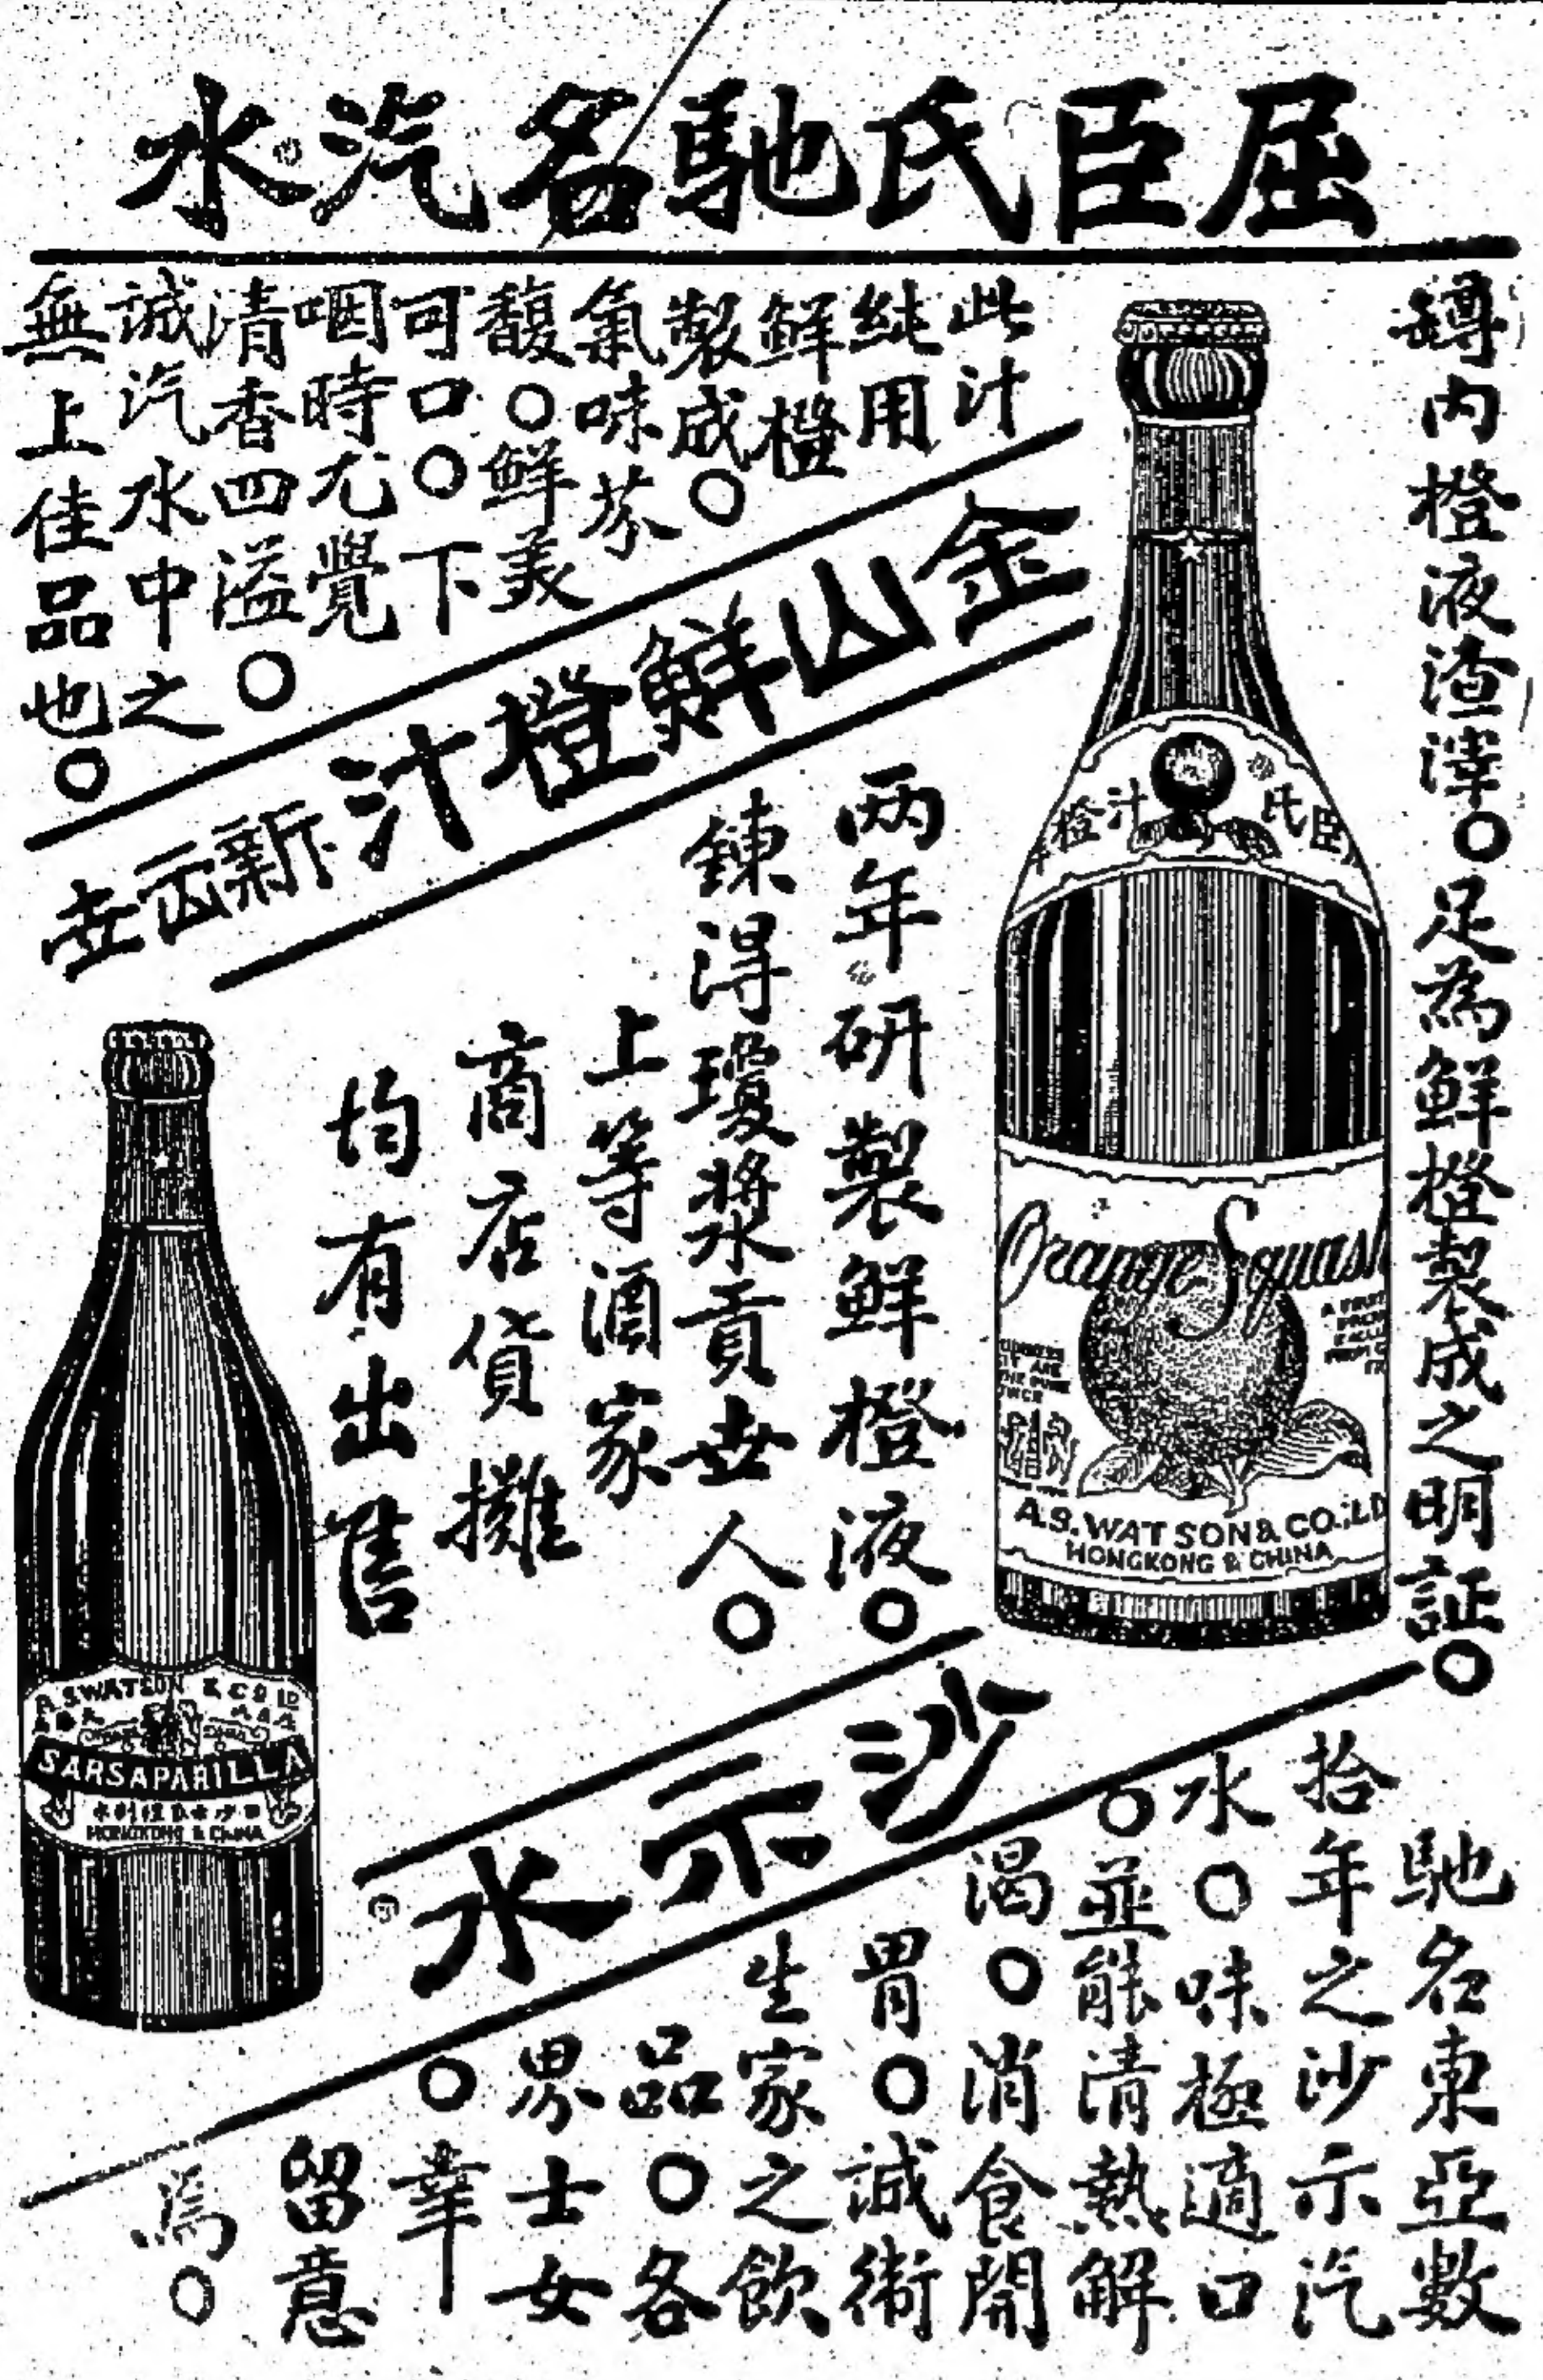 屈臣氏馳名汽水
此汁
純用
鮮橙
製成〇
氣味芬
馥〇鮮美
可口〇下
咽時尤覺
清香四溢〇
誠汽水中之
無上佳品也〇
金山鮮橙汁新出世
罇內橙液渣滓〇足為鮮橙製成之明証〇
両年研製鮮橙液〇
鍊淂瓊漿貢世人〇
上等酒家
商店貨攤
均有出售
臣氏
汁橙
Orange Squash
A.S. WATSON & CO., LD
HONGKONG & CHINA
A.S. WATSON & CO LD
SARSAPARILLA
HONGKONG & CHINA
沙示水
馳名東亞數
拾年之沙示汽
水〇味極適口
〇並能清熱解
渴〇消食開
胃〇誠衛
生家之飲
品〇各
界士女
〇幸
留意
焉〇